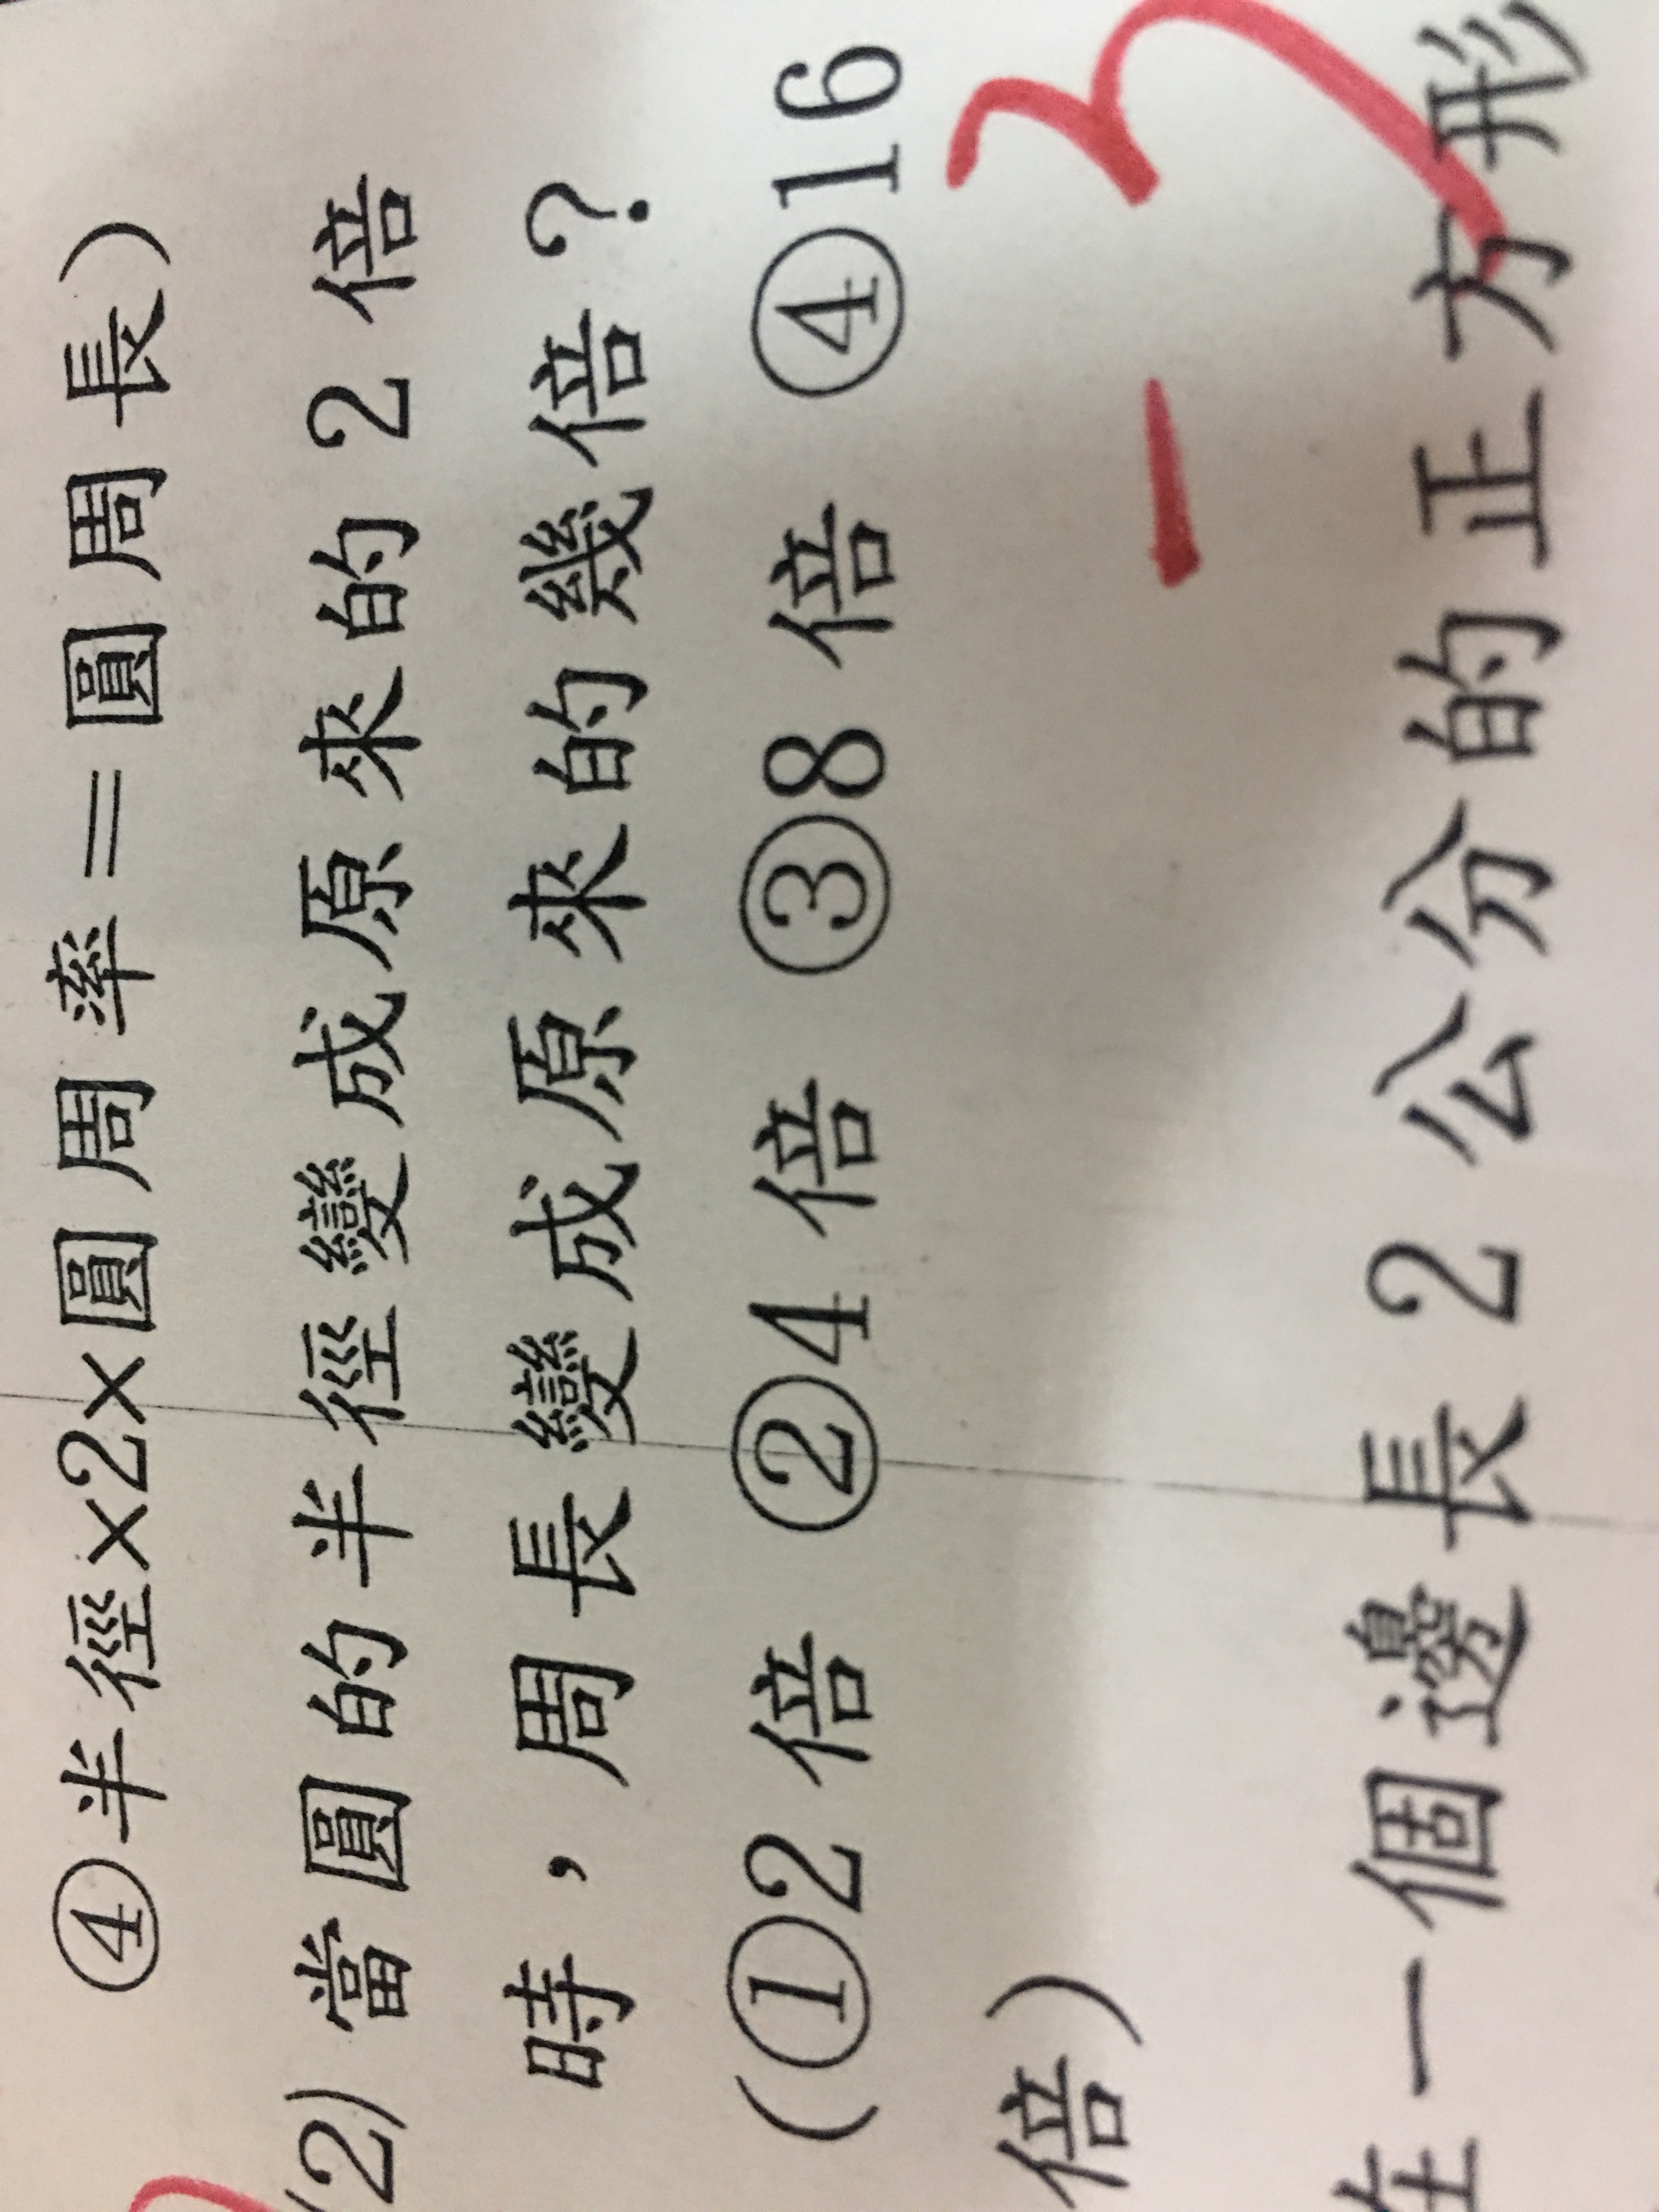 ④半徑×2×圓周率＝圓周長）
(2) 當圓的半徑變成原來的 2 倍
時，周長變成原來的幾倍？
（①2 倍 ②4 倍 ③8 倍 ④16
倍）
在一個邊長 2 公分的正方形